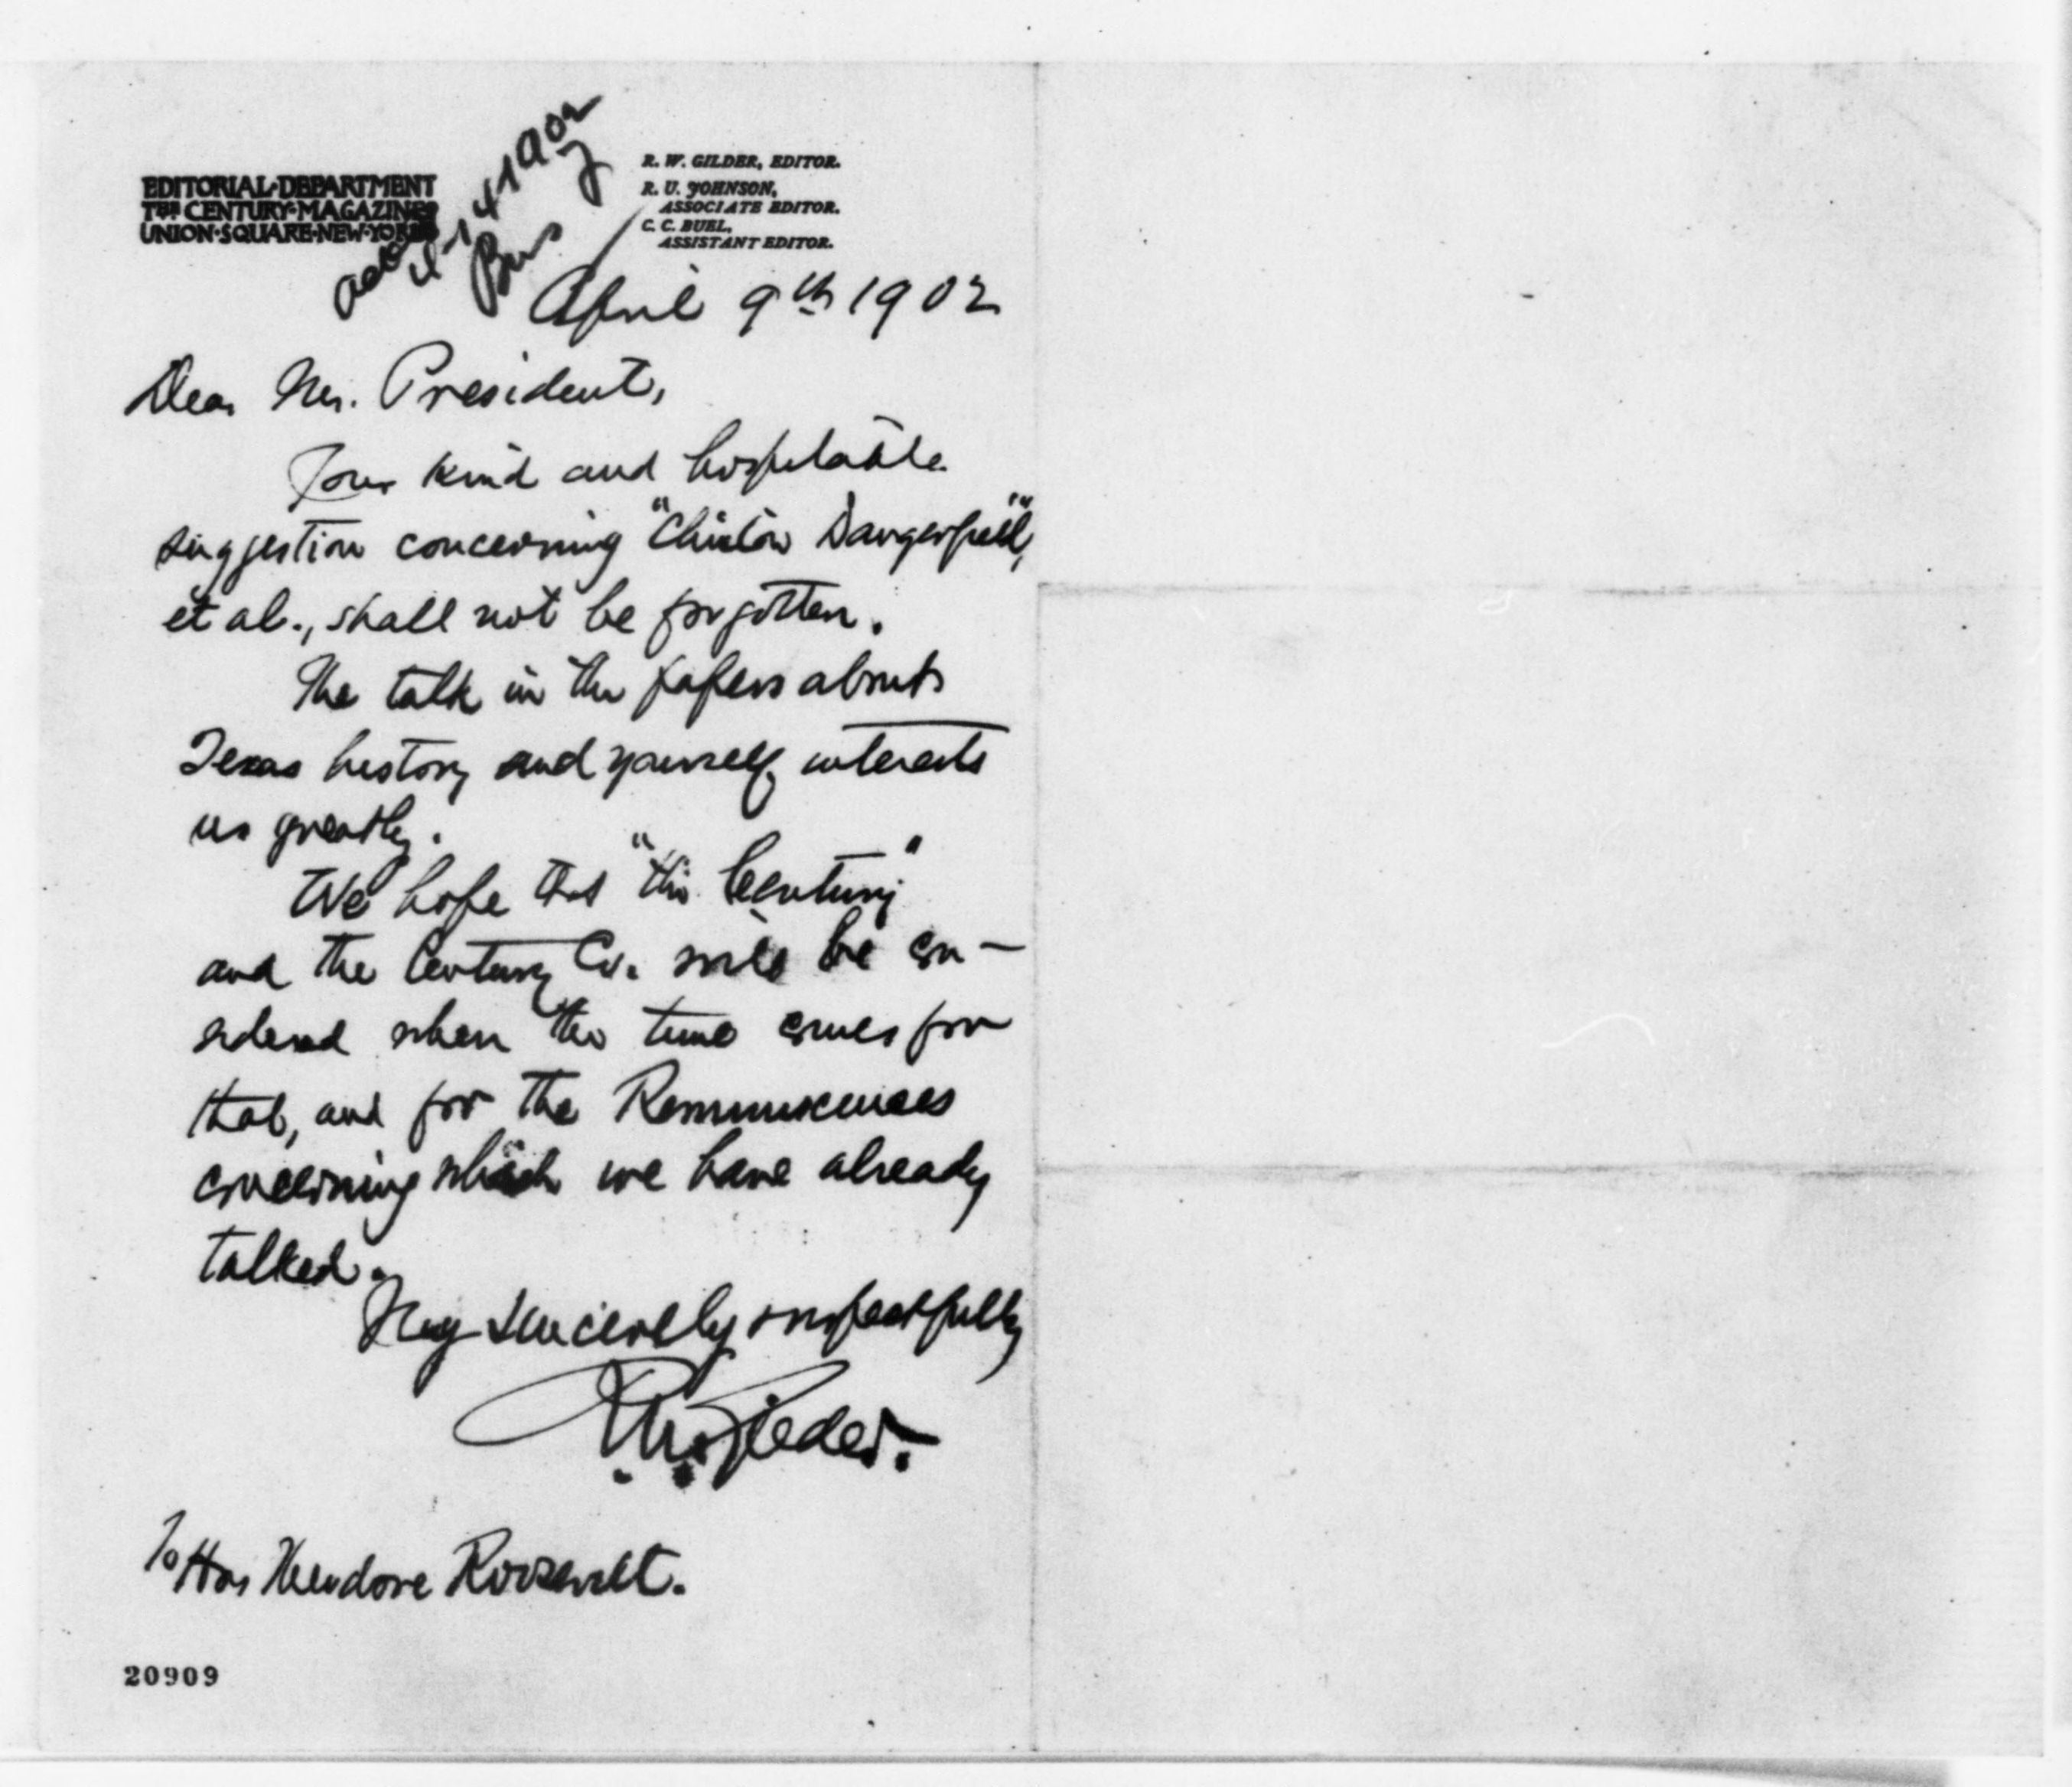 EDITORIAL·DEPARTMENT
THE CENTURY·MAGAZINE
UNION·SQUARE·NEW·YORK
R. W. GILDER, EDITOR.
R. U. JOHNSON,
ASSOCIATE EDITOR.
C. C. BUEL,
ASSISTANT EDITOR.
4-14-1902
April 9th 1902
Dear Mr. President,
Your kind and hospitable
suggestion concerning "Clinton Dangerfield",
et al., shall not be forgotten.
The talk in the papers about
Texas history and yourself interests
us greatly.
We hope that "the Century"
and the Century Co. will be con-
sidered when the time comes for
that, and for the Reminiscences
concerning which we have already
talked.
Very sincerely & respectfully
R. W. Gilder.
To Hon Theodore Roosevelt.
20909